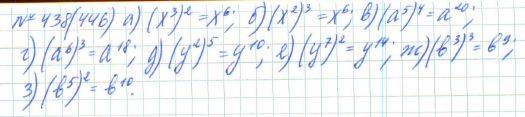 № 438(446) а) (x³)² = x⁶; б) (x²)³ = x⁶; в) (a⁵)⁴ = a²⁰;
г) (a⁶)³ = a¹⁸; д) (y²)⁵ = y¹⁰; е) (y⁷)² = y¹⁴; ж) (b³)³ = b⁹;
з) (b⁵)² = b¹⁰.